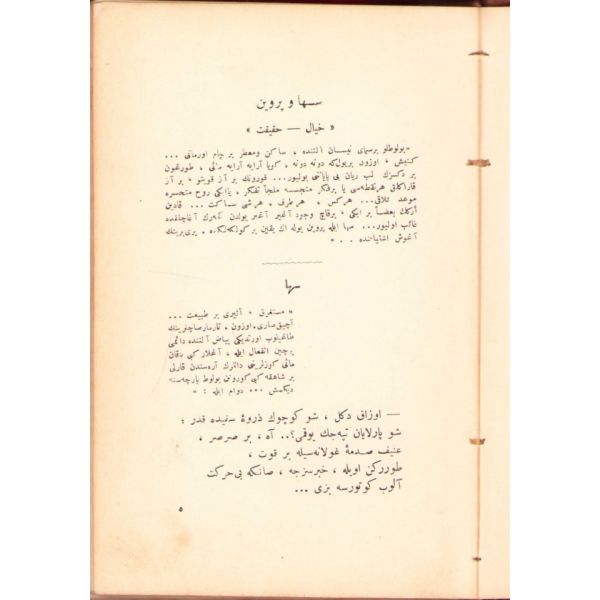 سها و پروین
« خیال — حقیقت »
« بولوطلو برسمای نیسان آلتنده ، ساکن ومعطر بر چام اورمانی ...
کنیش ، اوزون بریول که دونه دونه ، کویا آرایه آرایه مائی ، طورغون
بر دکزك لب
قاراکلق هرنقطه‌سی یا برفکر متجسسه ملجأ تفکر ، یاایکی روح متحسره
موعد تلاقی... هرکس ، هر طرف ، هر شی ساکت ... قادین
ارکك بعضاً بر ایکی ، برقاچ وجود آغیر آغیر یولدن کچه‌رك آغاجلقده
غائب اولیور... سها ایله پروین یوله اك یقین بر کولکه‌لکده ، بری برینك
آغوش اشتیاقنده . . »
سها
« مستغرق ، اثیری بر طبیعت ...
آچیق صاری ، اوزون ، تارمار صاچلرینك
طاغیلوب اورتدیکی بیاض آلننده دائمی
برچین انفعال ایله ، آغلار کبی دقان
مائی کوزلرینی دالرك آره‌سندن قارلی
بر شاهقه کبی کورونن بولوط پارچه‌سنه
دیکمش ... دوام ایله : »
— اوزاق دکل ، شو کوچوك ذروهٔ سفیده قدر ؛
شو پارلایان تپه‌جك یوقمی ؟.. آه ، بر صرصر ،
عنیف صدمهٔ غولانه‌سیله بر قوت ،
طوررکن اویله ، خبرسزجه ، صانکه بی حرکت
آلوب کوتورسه بزی ...
٥